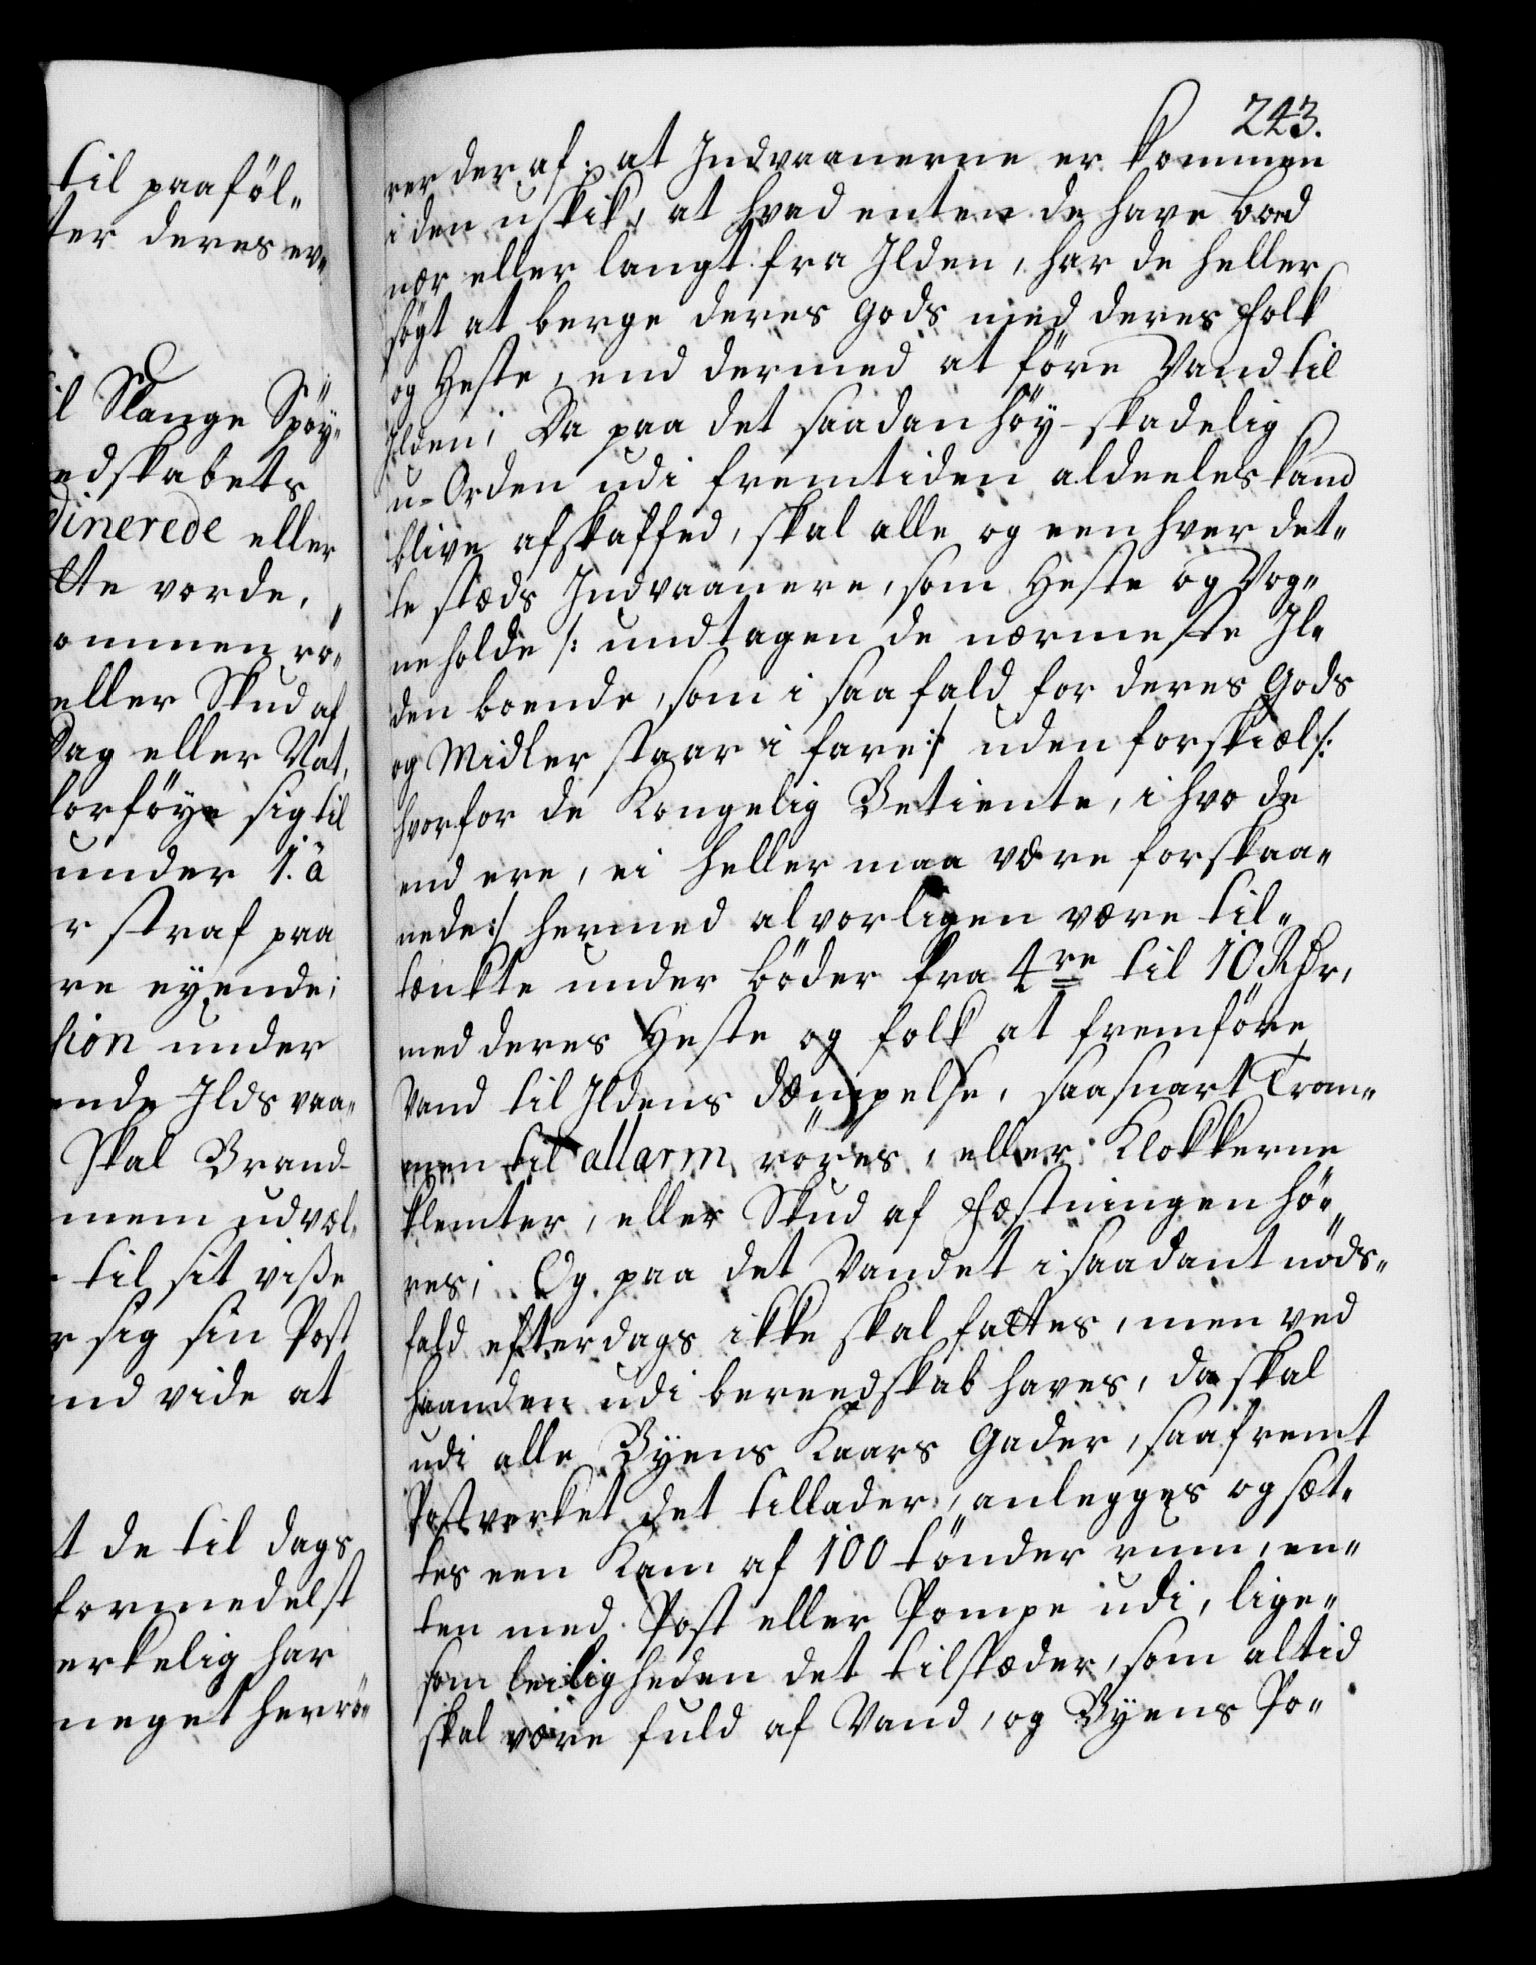 til paaföl„
ter deres ev„
il Slange Spöy„
edskabets
dinerede eller
tte vorde,
ommen rö„
eller Skud af
Dag eller Nat,
forföye sig til
under 1. á
r straf paa
re eyende;
sion under
ende Ilds vaa„
Skal Brand
mem udvæl„
til sit viße
r sig sin Post
nd vide at
t de til dags
formedelst
erkelig har
neget herrö„
243.
rer deraf; at Indvaanerne er kommen
i den uskik, at hvad enten de have boed
nær eller langt fra Ilden, har de heller
sögt at berge deres Gods med deres Folk
og Heste, end dermed at före Vand til
Ilden; Da paa det saadan höy-skadelig
u-Orden udi fremtiden aldeeles kand
blive afskaffed, skal alle og een hver det„
te stæds Indvaanere, som Heste og Vog„
ne holde /: undtagen de nærmeste Il„
den boende, som i saa fald for deres Gods
og Midler staar i fare :/ uden forskiæl /:
hvorfor de Kongelig Betiente, i hvo de
end ere, ei heller maa være forskaa„
nede :/ hermed alvorligen være til„
tænkte under böder fra 4re til 10 Rdr,
med deres Heste og folk at fremföre
Vand til Ildens dæmpelse, saasnart Trom„
men til allarm röres, eller Klokkerne
klemter, eller Skud af Fæstningen hö„
res; Og paa det Vandet i saadant nöds„
fald efterdags ikke skal fattes, men ved
haanden udi bereedskab haves, da skal
udi alle Byens Kaars Gader, saafremt
Postverket det tillader, anlegges og sæt„
tes een Kam af 100 tönder rum, en„
ten med Post eller Pompe udi, lige„
som leiligheden det tilstæder, som altid
skal være fuld af Vand, og Byens Po„